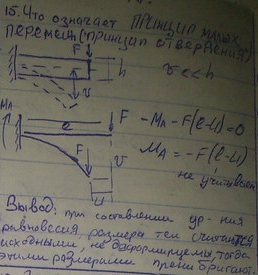 15. Что означает ПРИНЦИП малых
перемещ (принцип отвердения)
F
h
v << h
v
MA
F
e
-MA - F(l-u)=0
F
v
MA = -F(l-u)
не учитываем
u
Вывод: при составлении ур-ния
равновесия размеры тел считаются
исходными, не деформируемы, тогда
этими размерами пренебрегают.